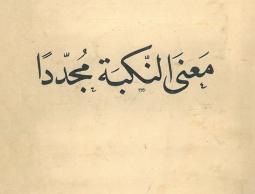 مَعنَى النَّكبَة مُجَدّدًا